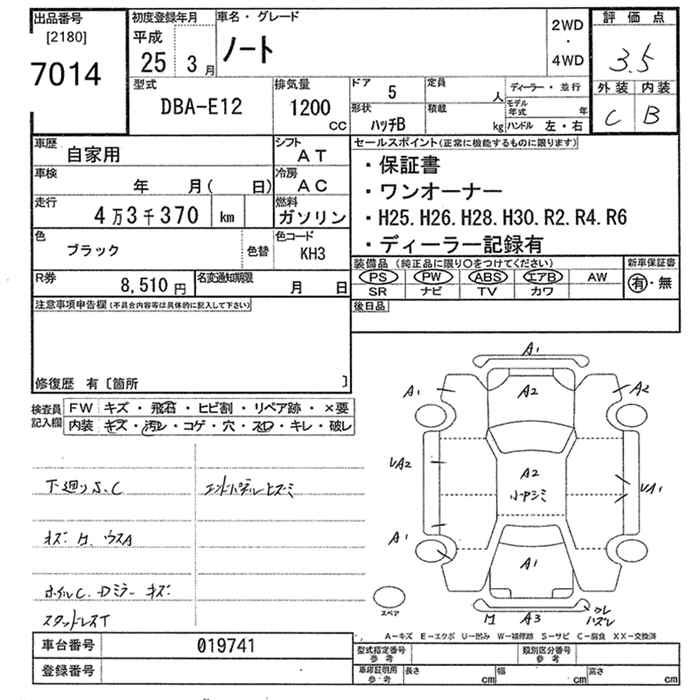 出品番号
[2180]
7014
初度登録年月
平成
25 3月
車名・グレード
ノート
2WD
・
4WD
評価点
3.5
外装 内装
C B
型式
DBA-E12
排気量
1200
CC
ドア
5
定員
人
形状
ハッチB
積載
kg
ディーラー・並行
モデル年式 年
ハンドル 左・右
車歴
自家用
シフト
AT
車検
年 月( 日)
冷房
AC
走行
4万3千370 km
燃料
ガソリン
色
ブラック
色替
色コード
KH3
R券
8,510円
名変通知期限
月 日
セールスポイント(正常に機能するものに限ります)
・保証書
・ワンオーナー
・H25. H26. H28. H30. R2. R4. R6
・ディーラー記録有
装備品(純正品に限り〇をつけてください)
PS PW ABS エアB AW
SR ナビ TV カワ
新車保証書
有・無
後日品
注意事項申告欄(不具合内容等は具体的に記入して下さい)
修復歴 有〔箇所 〕
検査員記入欄
FW キズ・飛石・ヒビ割・リペア跡・×要
内装 キズ・汚レ・コゲ・穴・スレ・キレ・破レ
下廻りS.C
キズ
ホイルC. Dミラーキズ
スタッドレスT
A1
A1
A2
A2
VA2
A2
VA1
A1
A1
A3
スペア
A-キズ E-エクボ U-凹み W-補修跡 S-サビ C-腐食 XX-交換済
車台番号
019741
登録番号
型式指定番号
参考
類別区分番号
参考
車庫証明用
参考
長さ cm
幅 cm
高さ cm